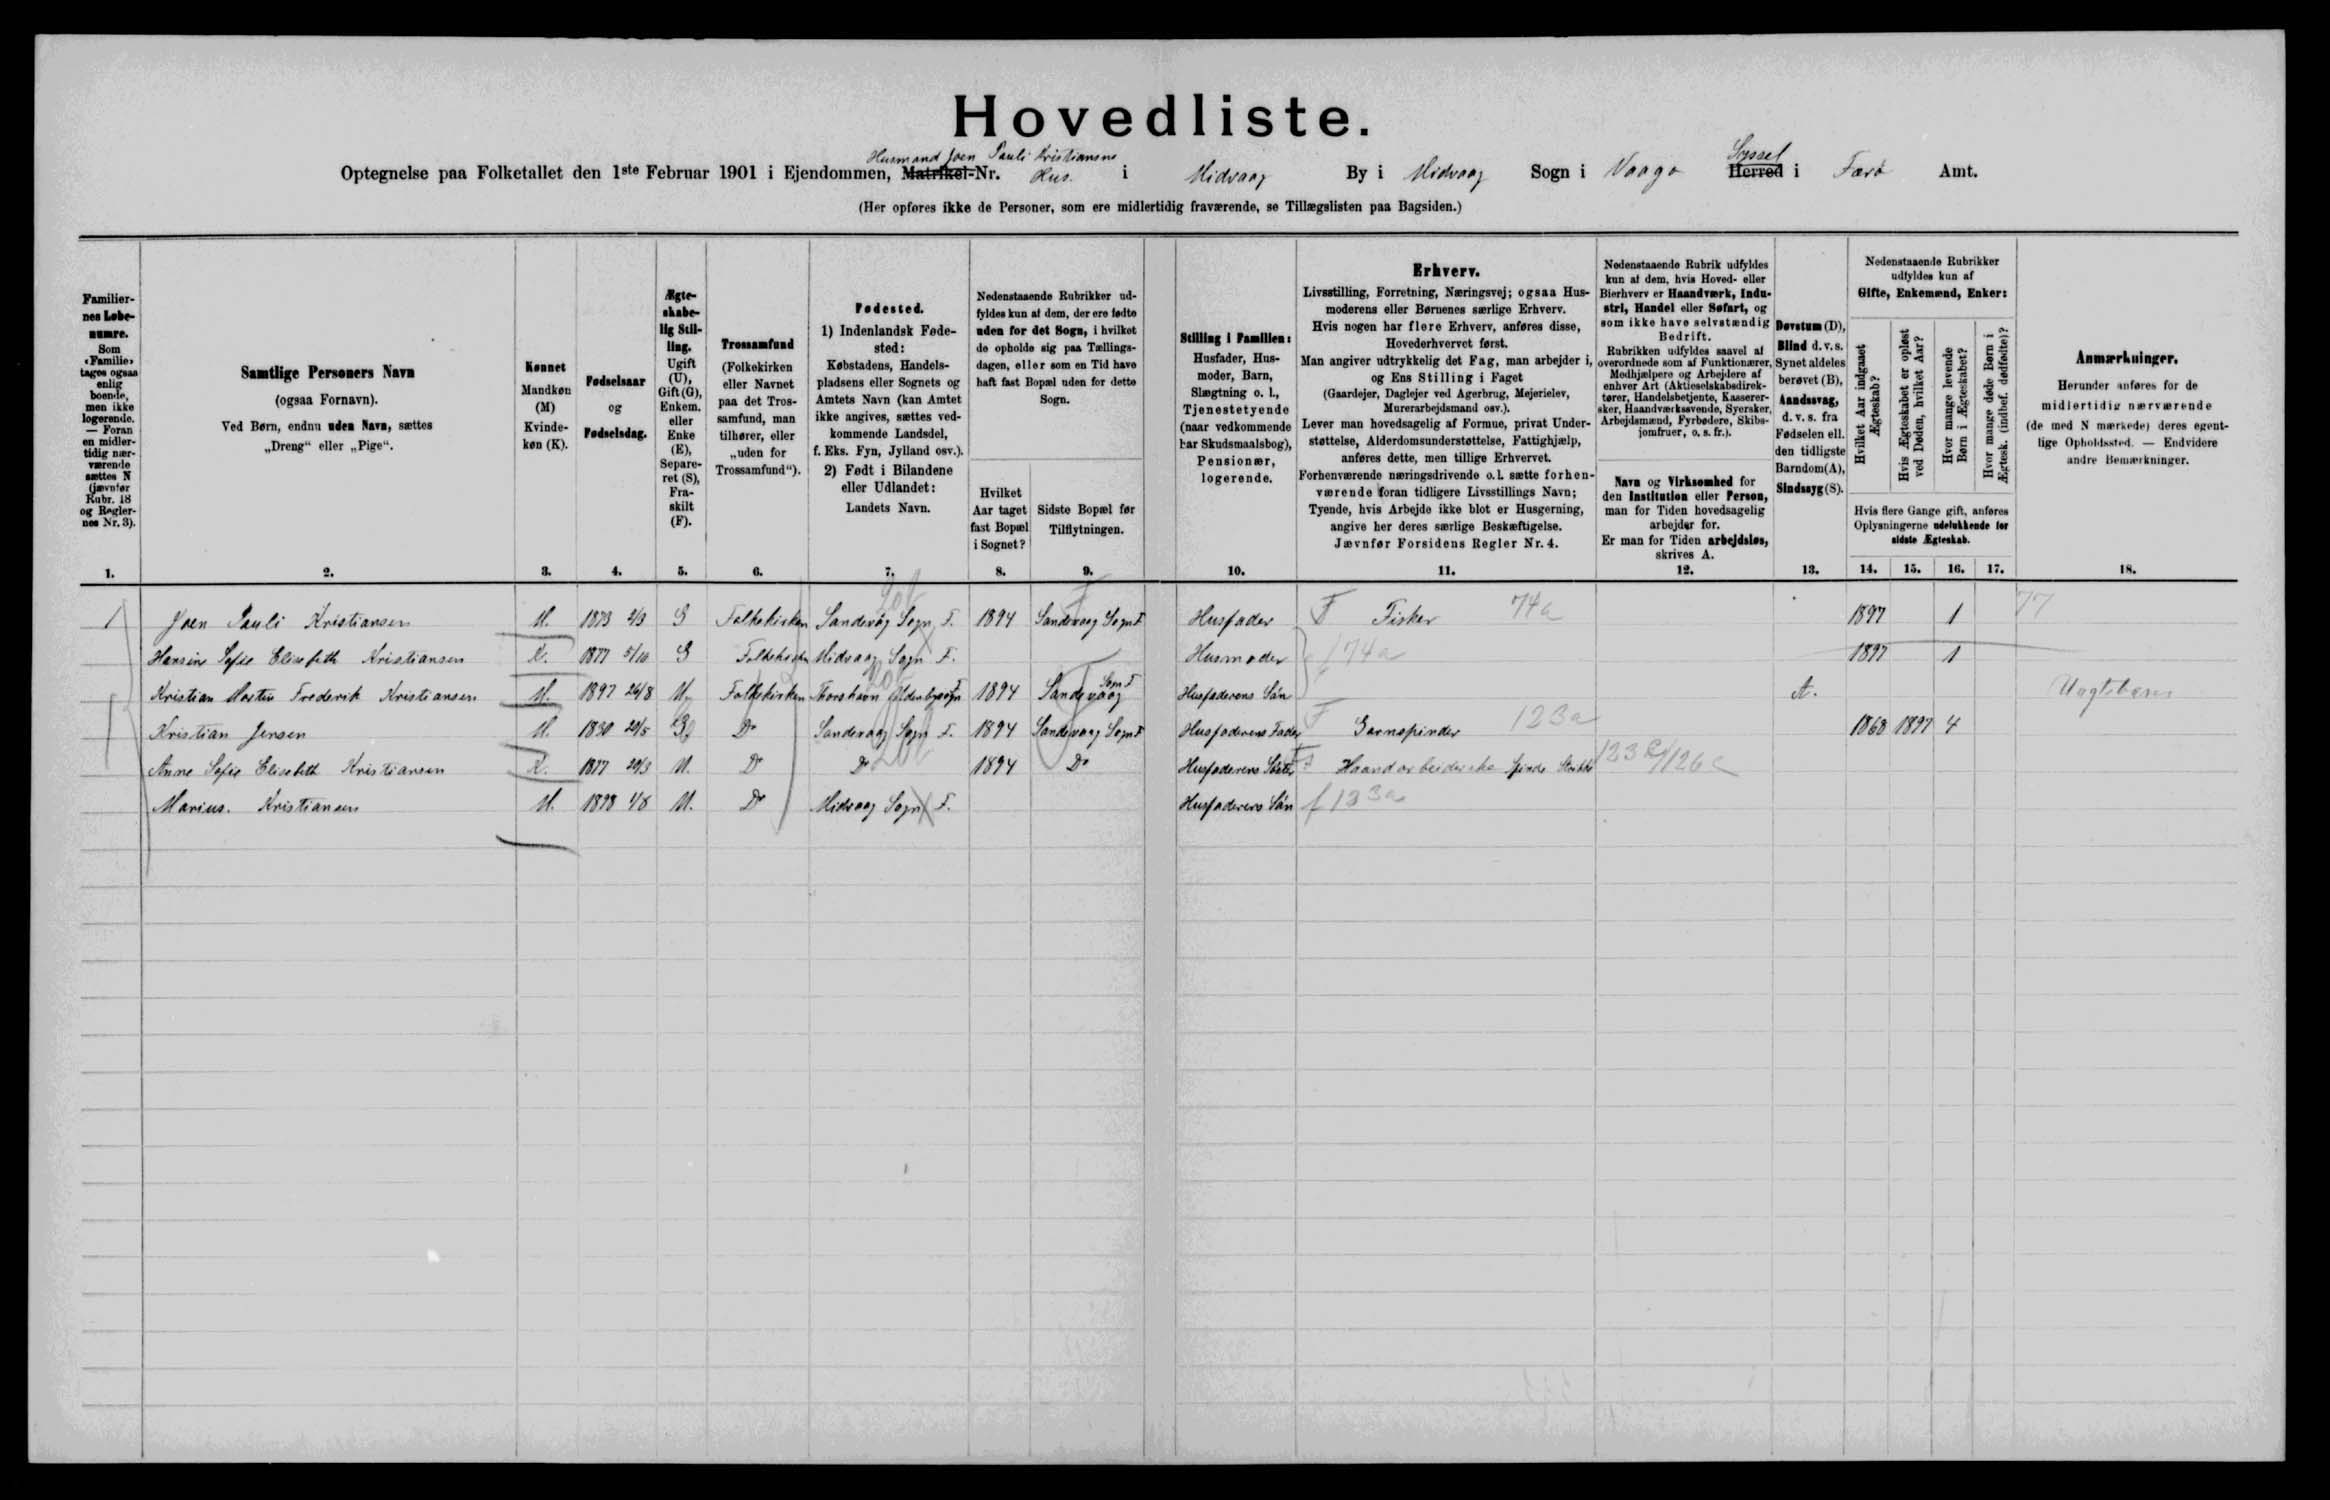 Hovedliste.
Husmand Joen Pauli Kristiansens
Optegnelse paa Folketallet den 1ste Februar 1901 i Ejendommen, Matrikel-Nr. Hus. i Midvaag By i Midvaag Sogn i Vaagø Herred Syssel i Færø Amt.
(Her opføres ikke de Personer, som ere midlertidig fraværende, se Tillægslisten paa Bagsiden.)
Familiernes Løbenumre. Som «Familie» tages ogsaa enlig boende, men ikke logerende. — Foran en midlertidig nærværende sættes N (jævnfør Rubr. 18 og Reglernes Nr. 3).
Samtlige Personers Navn (ogsaa Fornavn). Ved Børn, endnu uden Navn, sættes „Dreng“ eller „Pige“.
Kønnet Mandkøn (M) Kvindekøn (K).
Fødselsaar og Fødselsdag.
Ægteskabelig Stilling. Ugift (U), Gift (G), Enkem. eller Enke (E), Separeret (S), Fraskilt (F).
Trossamfund (Folkekirken eller Navnet paa det Trossamfund, man tilhører, eller „uden for Trossamfund“).
Fødested. 1) Indenlandsk Fødested: Købstadens, Handelspladsens eller Sognets og Amtets Navn (kan Amtet ikke angives, sættes vedkommende Landsdel, f. Eks. Fyn, Jylland osv.). 2) Født i Bilandene eller Udlandet: Landets Navn.
Nedenstaaende Rubrikker udfyldes kun af dem, der ere fødte uden for det Sogn, i hvilket de opholde sig paa Tællingsdagen, eller som en Tid have haft fast Bopæl uden for dette Sogn.
Hvilket Aar taget fast Bopæl i Sognet?
Sidste Bopæl før Tilflytningen.
Stilling i Familien: Husfader, Husmoder, Barn, Slægtning o. l., Tjenestetyende (naar vedkommende har Skudsmaalsbog), Pensionær, logerende.
Erhverv.
Livsstilling, Forretning, Næringsvej; ogsaa Husmoderens eller Børnenes særlige Erhverv.
Hvis nogen har flere Erhverv, anføres disse, Hovederhvervet først.
Man angiver udtrykkelig det Fag, man arbejder i, og Ens Stilling i Faget
(Gaardejer, Daglejer ved Agerbrug, Mejerielev, Murerarbejdsmand osv.).
Lever man hovedsagelig af Formue, privat Understøttelse, Alderdomsunderstøttelse, Fattighjælp, anføres dette, men tillige Erhvervet.
Forhenværende næringsdrivende o.l. sætte forhenværende foran tidligere Livsstillings Navn; Tyende, hvis Arbejde ikke blot er Husgerning, angive her deres særlige Beskæftigelse.
Jævnfør Forsidens Regler Nr. 4.
Nedenstaaende Rubrik udfyldes kun af dem, hvis Hoved- eller Bierhverv er Haandværk, Industri, Handel eller Søfart, og som ikke have selvstændig Bedrift.
Rubrikken udfyldes saavel af overordnede som af Funktionærer, Medhjælpere og Arbejdere af enhver Art (Aktieselskabsdirektører, Handelsbetjente, Kasserersker, Haandværkssvende, Syersker, Arbejdsmænd, Fyrbødere, Skibsjomfruer, o. s. fr.).
Navn og Virksomhed for den Institution eller Person, man for Tiden hovedsagelig arbejder for.
Er man for Tiden arbejdsløs, skrives A.
Døvstum (D), Blind d. v. s. Synet aldeles berøvet (B), Aandssvag, d. v. s. fra Fødselen ell. den tidligste Barndom (A), Sindssyg (S).
Nedenstaaende Rubrikker udfyldes kun af Gifte, Enkemænd, Enker:
Hvilket Aar indgaaet Ægteskab?
Hvis Ægteskabet er opløst ved Døden, hvilket Aar?
Hvor mange levende Børn i Ægteskabet?
Hvor mange døde Børn i Ægtesk. (indbef. dødfødte)?
Hvis flere Gange gift, anføres Oplysningerne udelukkende for sidste Ægteskab.
Anmærkninger.
Herunder anføres for de midlertidig nærværende (de med N mærkede) deres egentlige Opholdssted. — Endvidere andre Bemærkninger.
1. 2. 3. 4. 5. 6. 7. 8. 9. 10. 11. 12. 13. 14. 15. 16. 17. 18.
1 Joen Pauli Kristiansen M. 1873 2/3 G Folkekirken Sandevåg Sogn, F. 1894 Sandevaag Sogn F Husfader F Fisker 74a 1897 1 77
Hansine Sofie Elisebeth Kristiansen K. 1877 5/10 G Folkekirken Midvaag Sogn F. Husmoder f 74a 1897 1
Kristian Martin Frederik Kristiansen M. 1897 26/8 U. Folkekirken Thorshavn 1894 Sandevaag Sogn F Husfaderens Sön A.
Kristian Jensen M. 1830 20/5 Do Sandevaag Sogn F. 1894 Sandevaag Sogn F Husfaderens Fader F Garnspinder 123a 1868 1897 4
Anne Sofie Elisebeth Kristiansen K. 1877 20/3 U. Do Do 1894 Do Husfaderens Söster F Haandarbeiderske Spinde Strikke 123 126c
Marius. Kristiansen M. 1898 1/8 U. Do Midvaag Sogn F. Husfaderens Sön f 123a